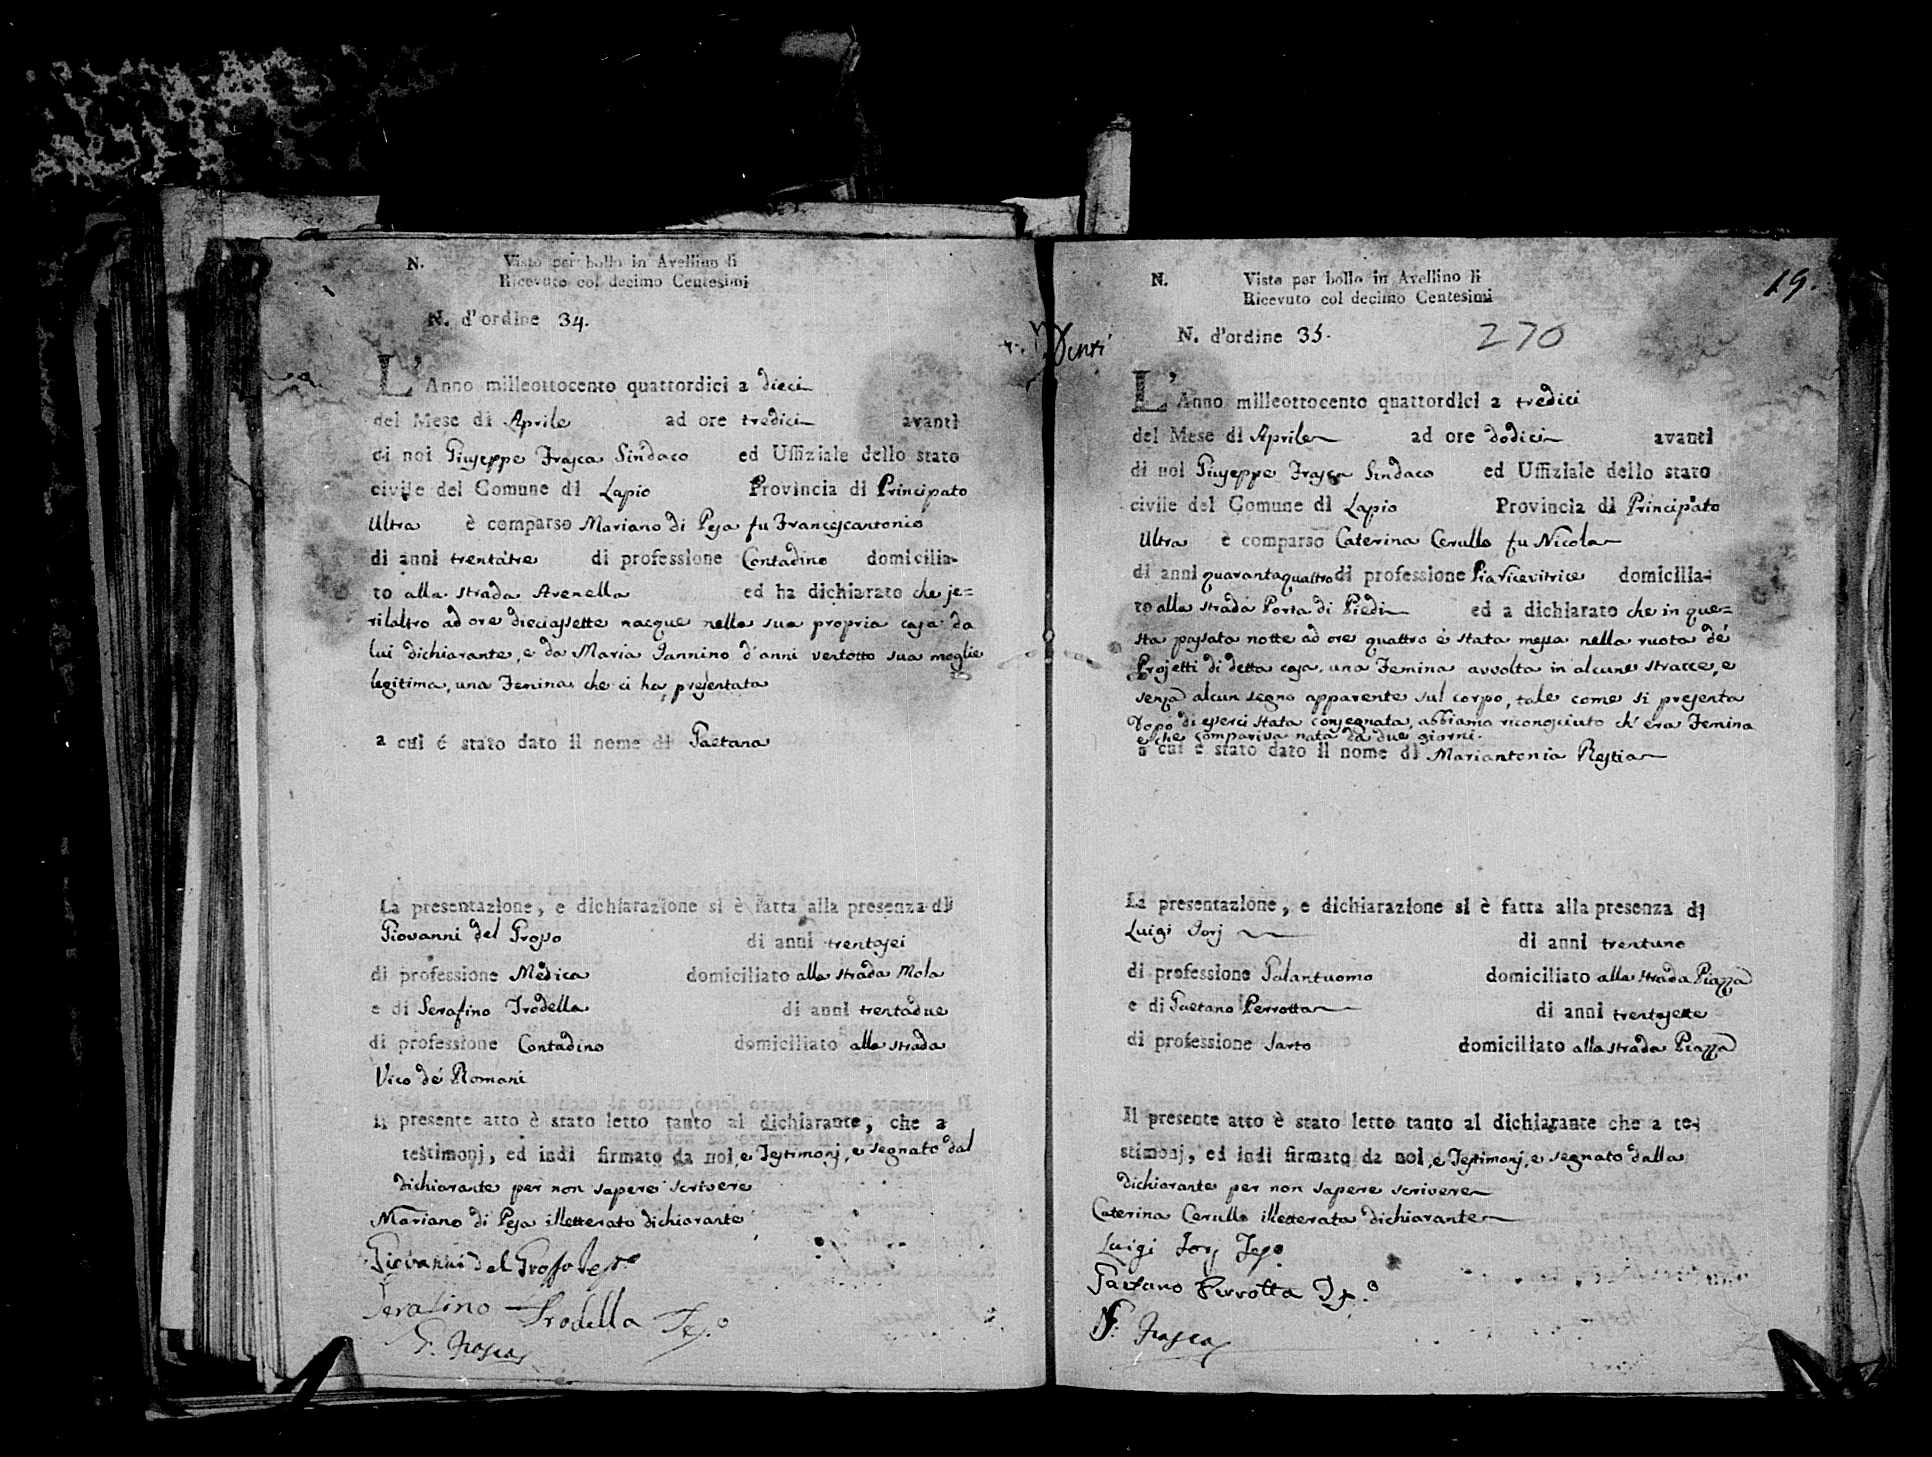 N. Visto per bollo in Avellino li
Ricevuto col decimo Centesimi
N. d'ordine 34.
L'Anno milleottocento quattordici a dieci
del Mese di Aprile ad ore tredici avanti
di noi Giuseppe Frasca Sindaco ed Uffiziale dello stato
civile del Comune di Lapio Provincia di Principato
Ultra è comparso Mariano di Pesa fu Francescantonio
di anni trentatre di professione Contadino domicilia-
to alla strada Avenella ed ha dichiarato che je=
rilaltro ad ore dieciassette nacque nella sua propria casa da
lui dichiarante, e da Maria Iannino d'anni ventotto sua moglie
legitima, una Femina che ci ha presentata
a cui é stato dato il nome di Gaetana
La presentazione, e dichiarazione si è fatta alla presenza di
Giovanni del Grosso di anni trentasei
di professione Medica domiciliato alla strada Mola
e di Serafino Trodella di anni trentadue
di professione Contadino domiciliato alla strada
Vico de' Romani
Il presente atto è stato letto tanto al dichiarante, che a
testimonj, ed indi firmato da noi, e Testimonj, e segnato dal
dichiarante per non sapere scrivere
Mariano di Pesa illetterato dichiarante
Giovanni del Grosso
Serafino Trodella Tes.o
G. Frasca
19.
N. Visto per bollo in Avellino li
Ricevuto col decimo Centesimi
N. d'ordine 35.
270
L'Anno milleottocento quattordici a tredici
del Mese di Aprile ad ore dodici avanti
di noi Giuseppe Frasca Sindaco ed Uffiziale dello stato
civile del Comune di Lapio Provincia di Principato
Ultra è comparso Caterina Cerullo fu Nicola
di anni quarantaquattro di professione Pia Ricevitrice domicilia-
to alla strada Porta di Piedi ed a dichiarato che in que=
sta passata notte ad ore quattro è stata messa nella ruota de'
Projetti di detta casa, una Femina avvolta in alcune stracce, e
senza alcun segno apparente sul corpo, tale come si presenta
Dopo di esserci stata consegnata, abbiamo riconosciuto ch'era Femina
e che compariva nata da due giorni.
a cui è stato dato il nome di Mariantonia Restia
La presentazione, e dichiarazione si è fatta alla presenza di
Luigi Iorj di anni trentuno
di professione Galantuomo domiciliato alla strada Piazza
e di Gaetano Perrotta di anni trentasette
di professione Sarto domiciliato alla strada Piazza
Il presente atto è stato letto tanto al dichiarante che a te-
stimonj, ed indi firmato da noi, e Testimonj, e segnato dalla
dichiarante per non sapere scrivere
Caterina Cerullo illetterata dichiarante
Luigi Iorj Tes.o
Gaetano Perrotta
Frasca